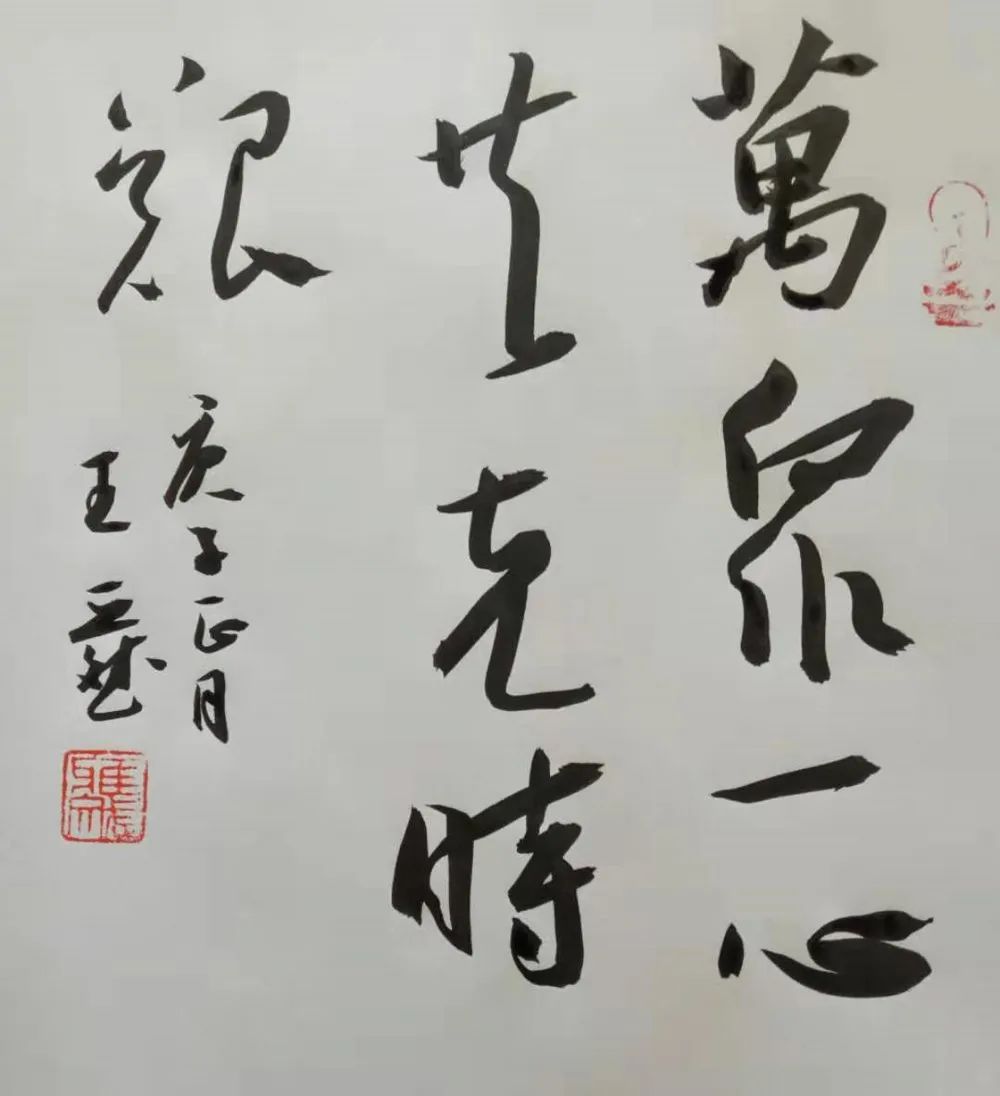 萬眾一心
共克時
艱
庚子正月
王